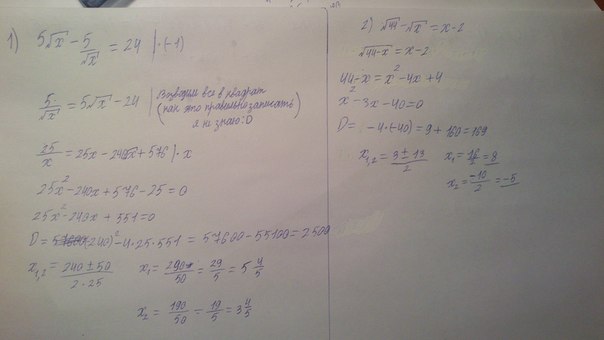 1) 5√x - 5/√x = 24 |·(-1)
5/√x = 5√x - 24 | Возводим все в квадрат
(как это правильно записать
я не знаю:D)
25/x = 25x - 240x + 576 |·x
25x² - 240x + 576 - 25 = 0
25x² - 240x + 551 = 0
D = (240)² - 4·25·551 = 57600 - 55100 = 2500
x₁,₂ = (240 ± 50)/(2·25) x₁ = 290/50 = 29/5 = 5 4/5
x₂ = 190/50 = 19/5 = 3 4/5
2) √44 - √x = x - 2
√(44-x) = x - 2
44 - x = x² - 4x + 4
x² - 3x - 40 = 0
D = -4·(-40) = 9 + 160 = 169
x₁,₂ = (3 ± 13)/2 x₁ = 16/2 = 8
x₂ = -10/2 = -5